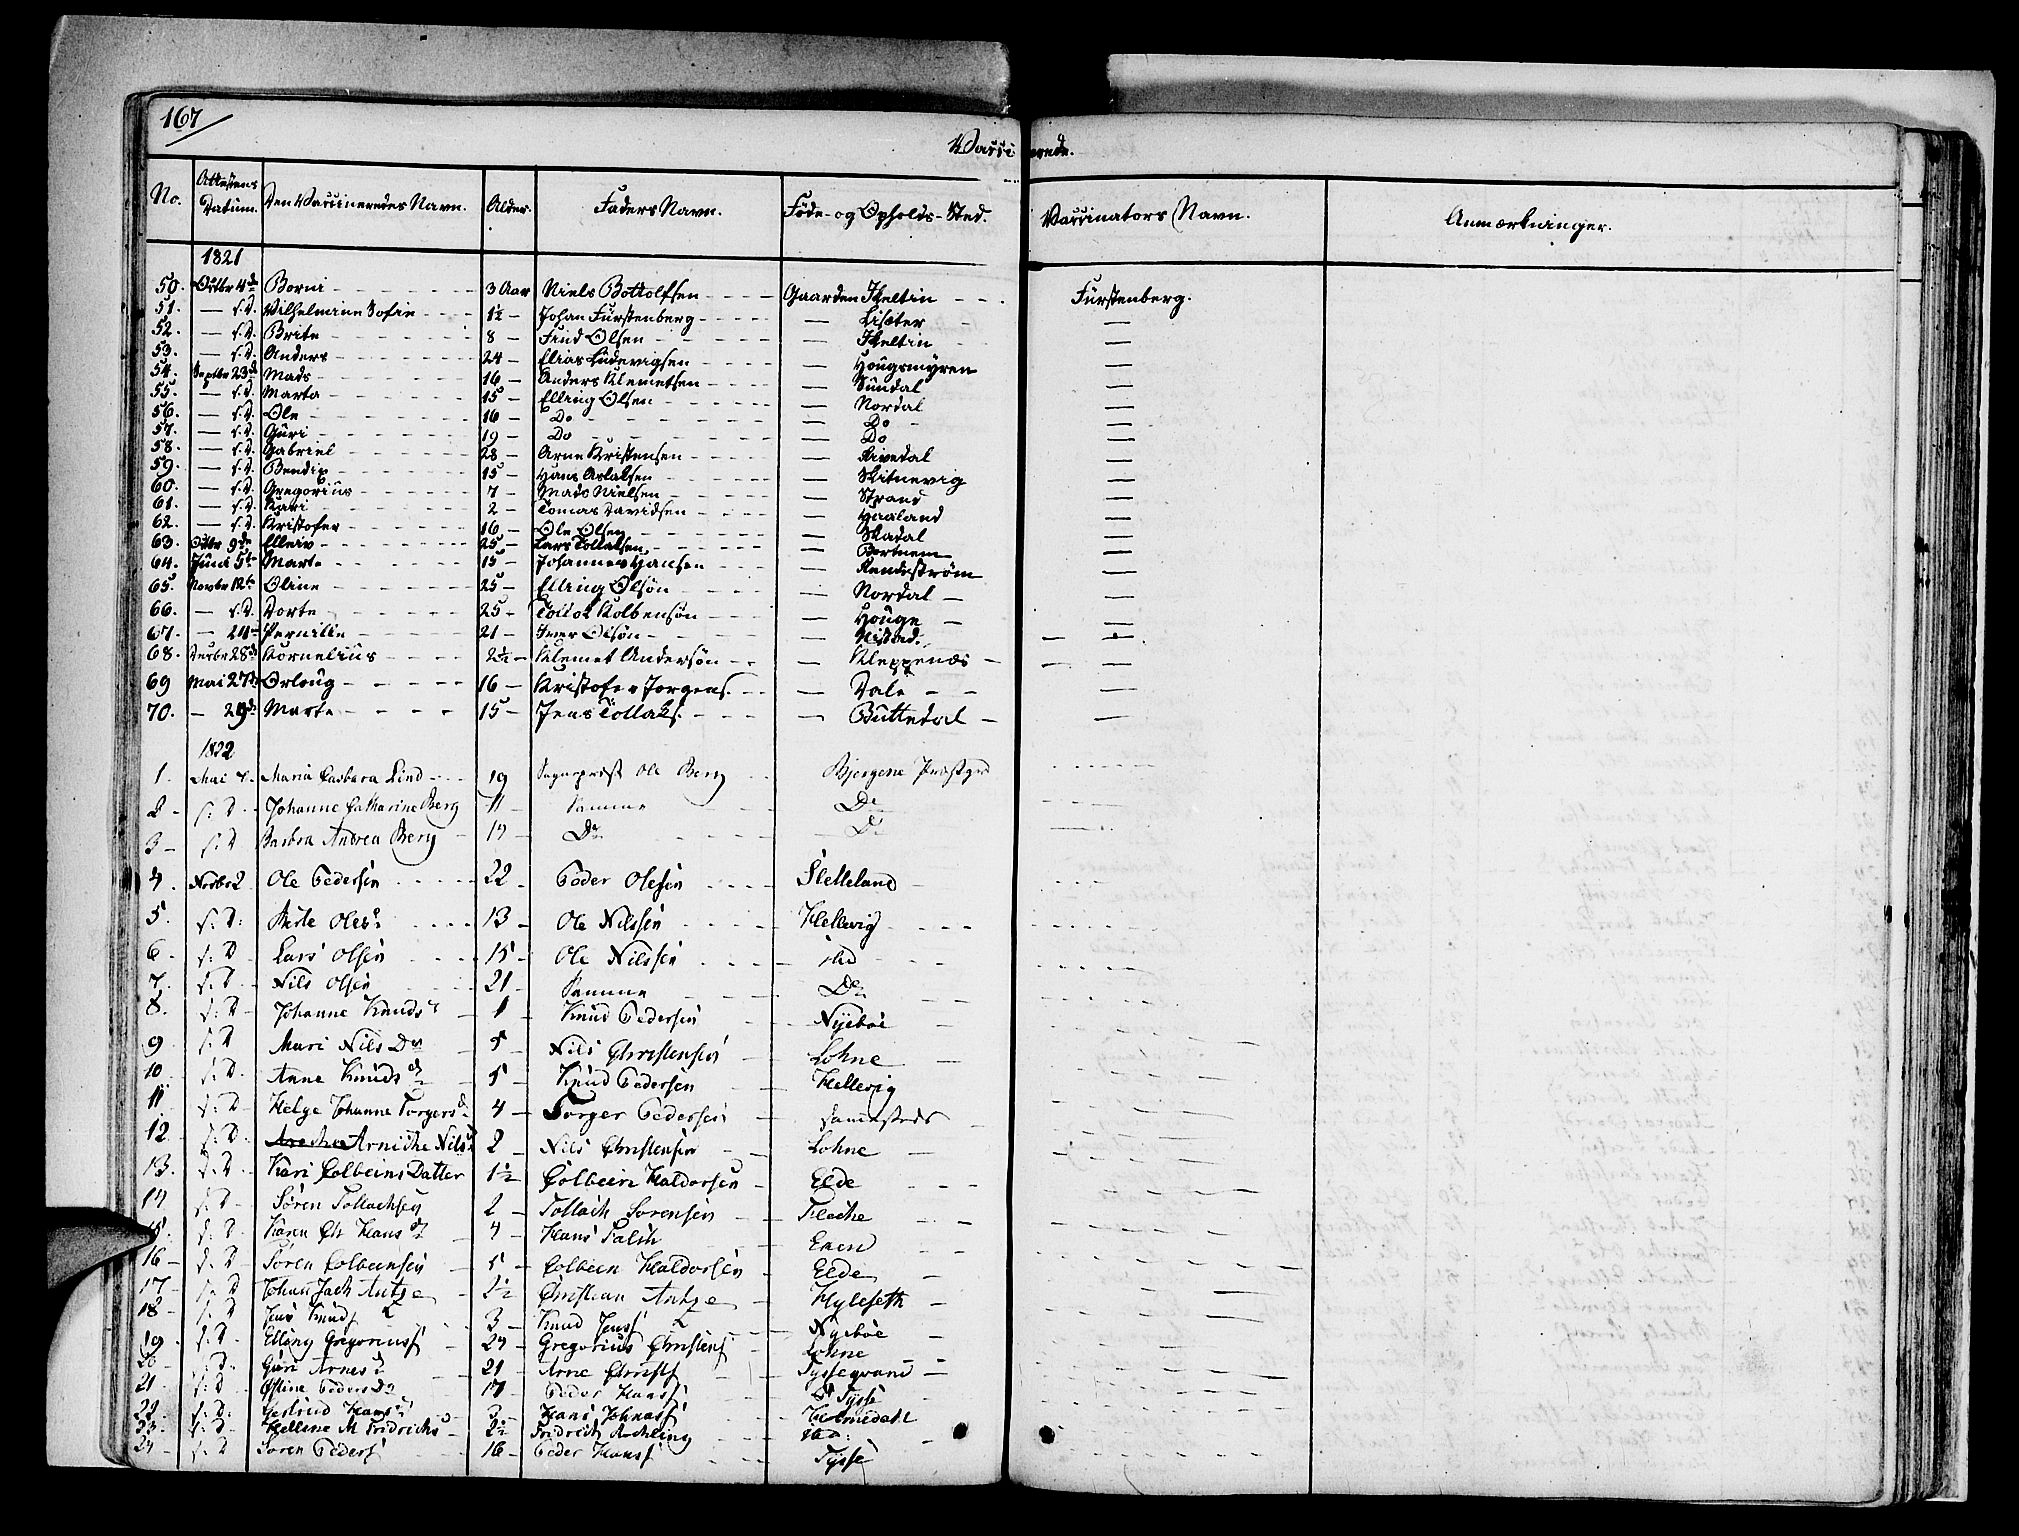 167
Vacci nerede.
No. Attestens Datum. Den Vaccineredes Navn. Alder. Faders Navn. Föde- og Opholds-Sted. Vaccinators Navn. Anmærkninger.
1821
50. Octbr 4de Borni 3 Aar Niels Bottolfsen Gaarden Hveltin Fürstenberg.
51. — s.D. Vilhelmine Sofie 1½ — Johan Fürstenberg — Lisæter —
52. — s.D. Brite 8 — Find Olsen — —
53. — s.D. Anders 24 — Elias Ludevigsen — Hougsmyren —
54. Septbr 23de Mads 16 — Anders Klemetsen — Sündal —
55. — s.D. Marta 15 — Elling Olsen — Nordal —
56. — s.D. Ole 16 — Do — Do —
57. — s.D. Güri 19 — Do — Do —
58. — s.D. Gabriel 28 — Arne Kristensen — Rivedal —
59. — s.D. Bendix 15 — Hans Aslaksen — Skitnevig —
60. — s.D. Gregorius 7 — Mads Nielsen — Strand —
61. — s.D. Kari 2 — Tomas Davidsen — Haaland —
62. — s.D. Kristofer 16 — Ole Olsen — Skadal —
63. Octbr 9de Elleiv 25 — Lars Tollaksen — Bortnem —
64. Juni 5te Marte 15 — Johannes Hansen — Rendeström —
65. Novbr 12te Oline 25 — Elling Olsön — Nordal —
66. — s.D. Dorte 25 — Tollok Kolbensön — Houge —
67. — 24de Pernille 21 — Iver Olsön — Nistad. —
68. Decbr 28de Kornelius 2½ — Klemet Andersön — Kleppenæs —
69 Mai 27de Orloug 16 — Kristofer Jorgens. — Dale —
70. — 29de Marte 15 — Jens Tollaks. — Buttedal —
1822
1. Mai 7. Maria Barbara Lind 19 Sognepræst Ole Berg Bjergene Præstgrd
2 — s:D. Johanne Catharine Berg 11 Samme Do
3 — s:D Barbra Andrea Berg 14 Do Do
4. Novbr 2 Ole Pedersen 22 Peder Olesen Slelleland
5. s:D: Birte Olesd. 13 — Ole Nilssen Hellevig
6 — s:D Lars Olsen 15 — Ole Nilssen ibd
7. s:D. Nils Olsen 21 Samme Do
8. s:D Johanne Knudsd. 1 Knud Pedersen Nyebøe
9 s:D Mari Nils Dr 5 Nils Christensen Lohne
10 s:D. Anne Knudsd. 5 Knud Pedersen Hellevig
11 s:D Helge Johanne Torgersd. 4 — Torger Pedersen samesteds
12. s:D. Arniche Nilsd. 2 Nils Christensen Lohne
13. s:D. Kari Colbeins Datter 1½ Colbein Haldorsen Elde
14 s:D Sören Tollachsen 2 Tollach Sorensen Fleche
15. s:D. Karen Els Hansd. 4 Hans Falch Enen
16 — s:D Sören Colbensen 5 Colbeen Haldorsen Elde
17 — s:D Johan Jach Antze 2½ Christian Antze Hyleseth
18 — s:D Jens Knuds 3 — Knud Jens Nyebøe
19. s:D. Elling Gregoriuss 24 — Gregorius Christens Lohne
20 — s:D. Güri Arnesd. 21 — Arne Christs Tyssegvand
21 s:D Østine Peders Dr 17 Peder Hanss Do Tysse
22 s:D. Giertrud Hansd. 3 — Hans Johnass Holmedahl
23. s:D Hellene M Fridrichsd. 2½ Fridrich Rechling ibd:
24 — s:D Sören Peders 16 — Peder Hanss Tysse